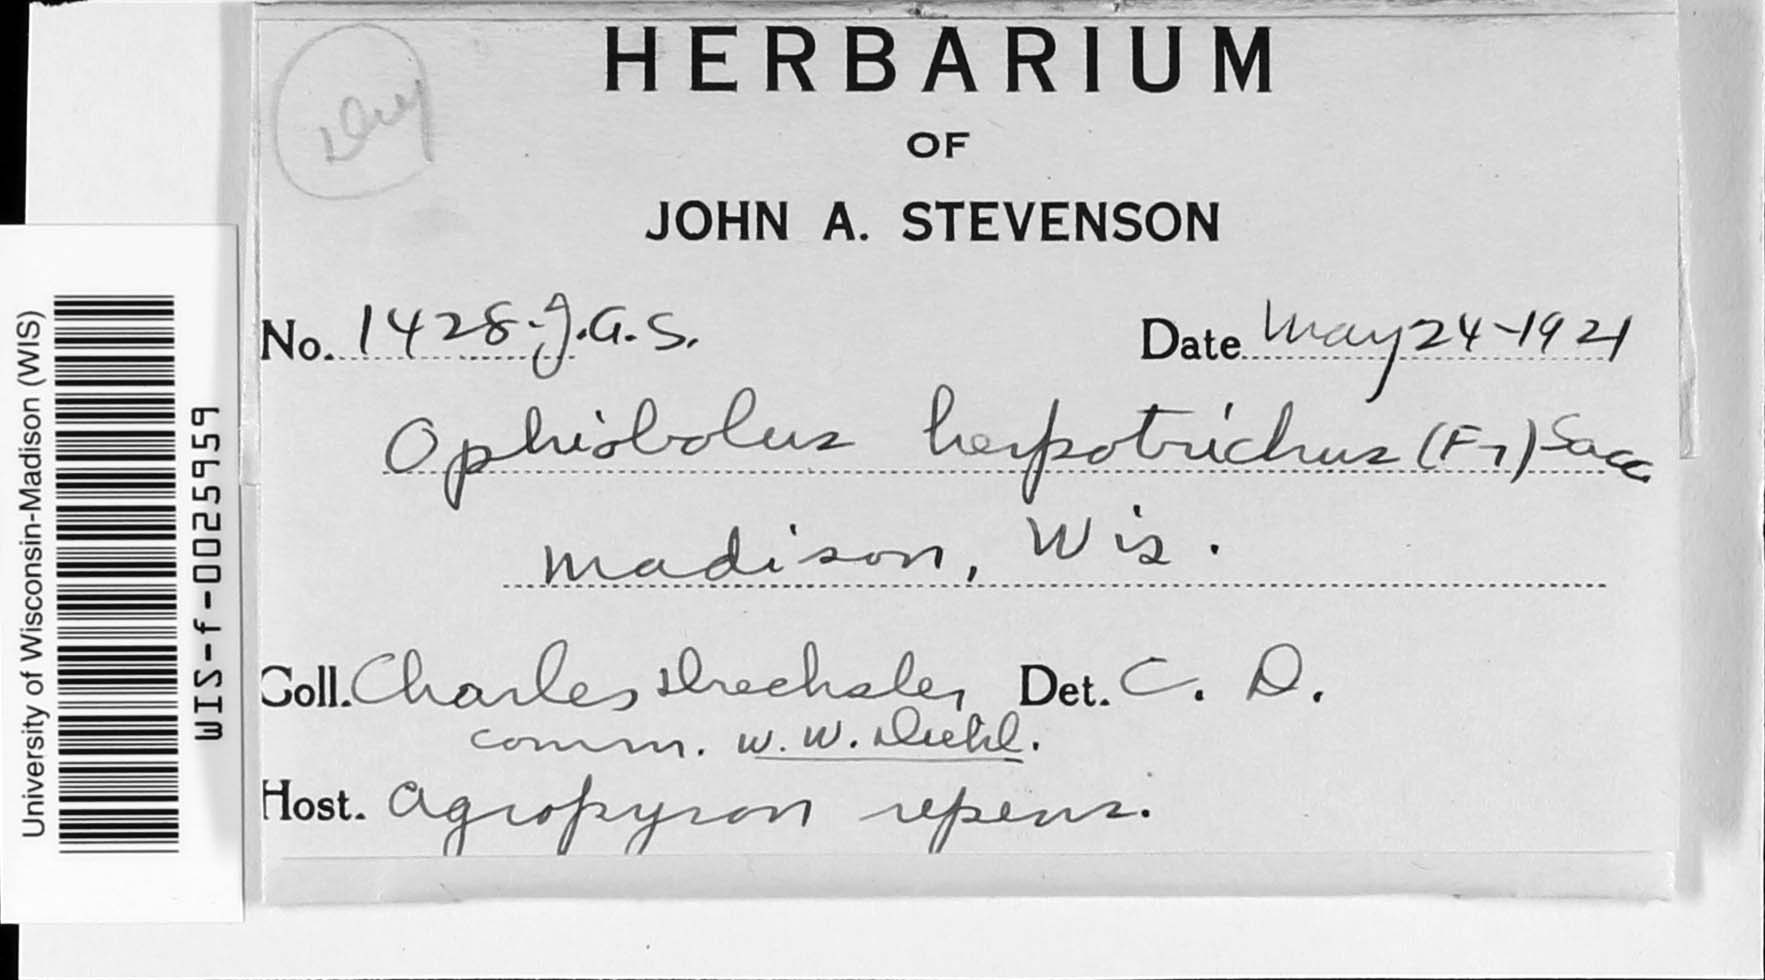 HERBARIUM
OF
JOHN A. STEVENSON
No. 1428-J.A.S.
Date May 24-1921
Ophiobolus herpotrichus (Fr) Sacc
Madison, Wis.
Coll. Charles Drechsler Det. C. D.
comm. W. W. Diehl.
Host. Agropyron repens.
University of Wisconsin-Madison (WIS)
WIS-f-0025959